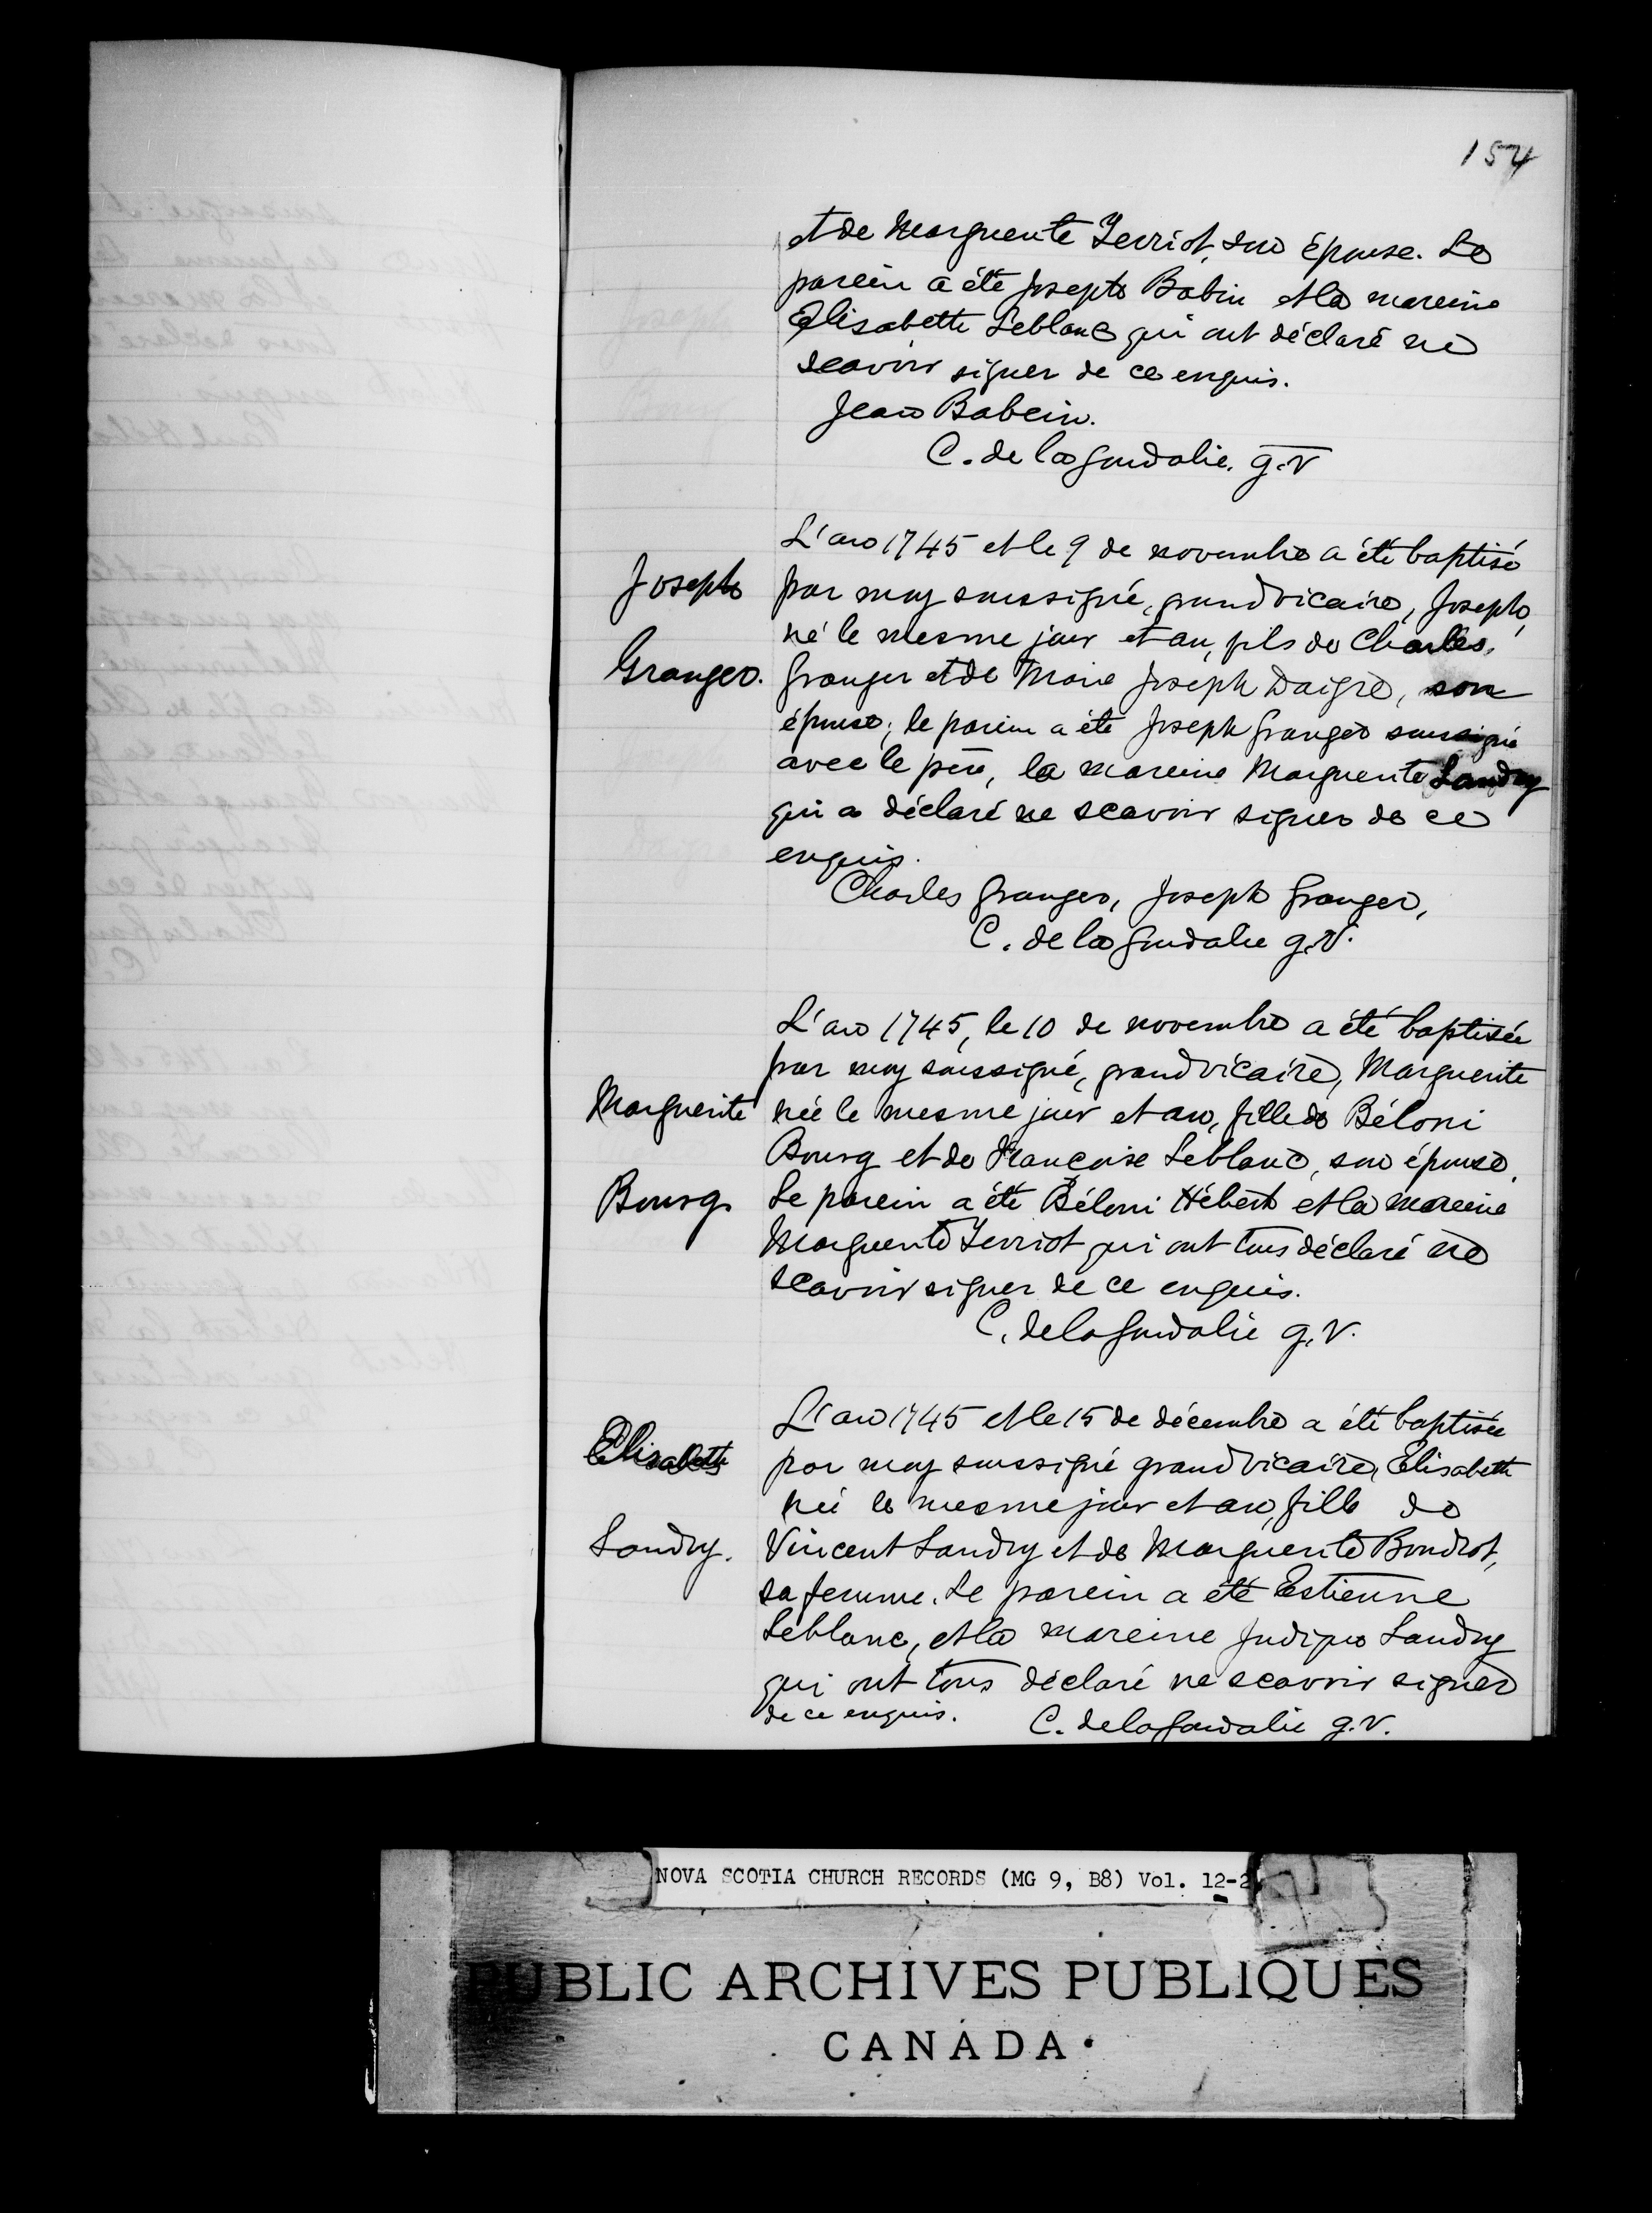 154
et de Marguerite Terriot, son épouse. Le
parein a été Joseph Babin et la mareine
Elisabette Leblanc qui ont déclaré ne
scavoir signer de ce enquis.
Jean Babein.
C. de la Goudalie. g.V
L'an 1745 et le 9 de novembre a été baptisé
Joseph par moy soussigné, grand vicaire, Joseph,
né le mesme jour et an, fils de Charles
Granger. Granger et de Marie Joseph Daigre, son
épouse; le parein a été Joseph Granger soussigné
avec le père, la mareine Marguerite Landry
qui a déclaré ne scavoir signer de ce
enquis.
Charles Granger, Joseph Granger,
C. de la Goudalie g.V.
L'an 1745, le 10 de novembre a été baptisée
par moy soussigné, grand vicaire, Marguerite
Marguerite née le mesme jour et an, fille de Béloni
Bourg et de Françoise Leblanc, son épouse.
Bourg. Le parein a été Béloni Hébert et la mareine
Marguerite Terriot qui ont tous déclaré ne
scavoir signer de ce enquis.
C. de la Goudalie g.V.
L'an 1745 et le 15 de décembre a été baptisée
Elisabette par moy soussigné grand vicaire, Elisabette
née le mesme jour et an, fille de
Landry. Vincent Landry et de Marguerite Boudrot,
sa femme. Le parein a été Estienne
Leblanc, et la mareine Judique Landry
qui ont tous déclaré ne scavoir signer
de ce enquis. C. de la Goudalie g.V.
NOVA SCOTIA CHURCH RECORDS (MG 9, B8) Vol. 12-2
PUBLIC ARCHIVES PUBLIQUES
CANADA